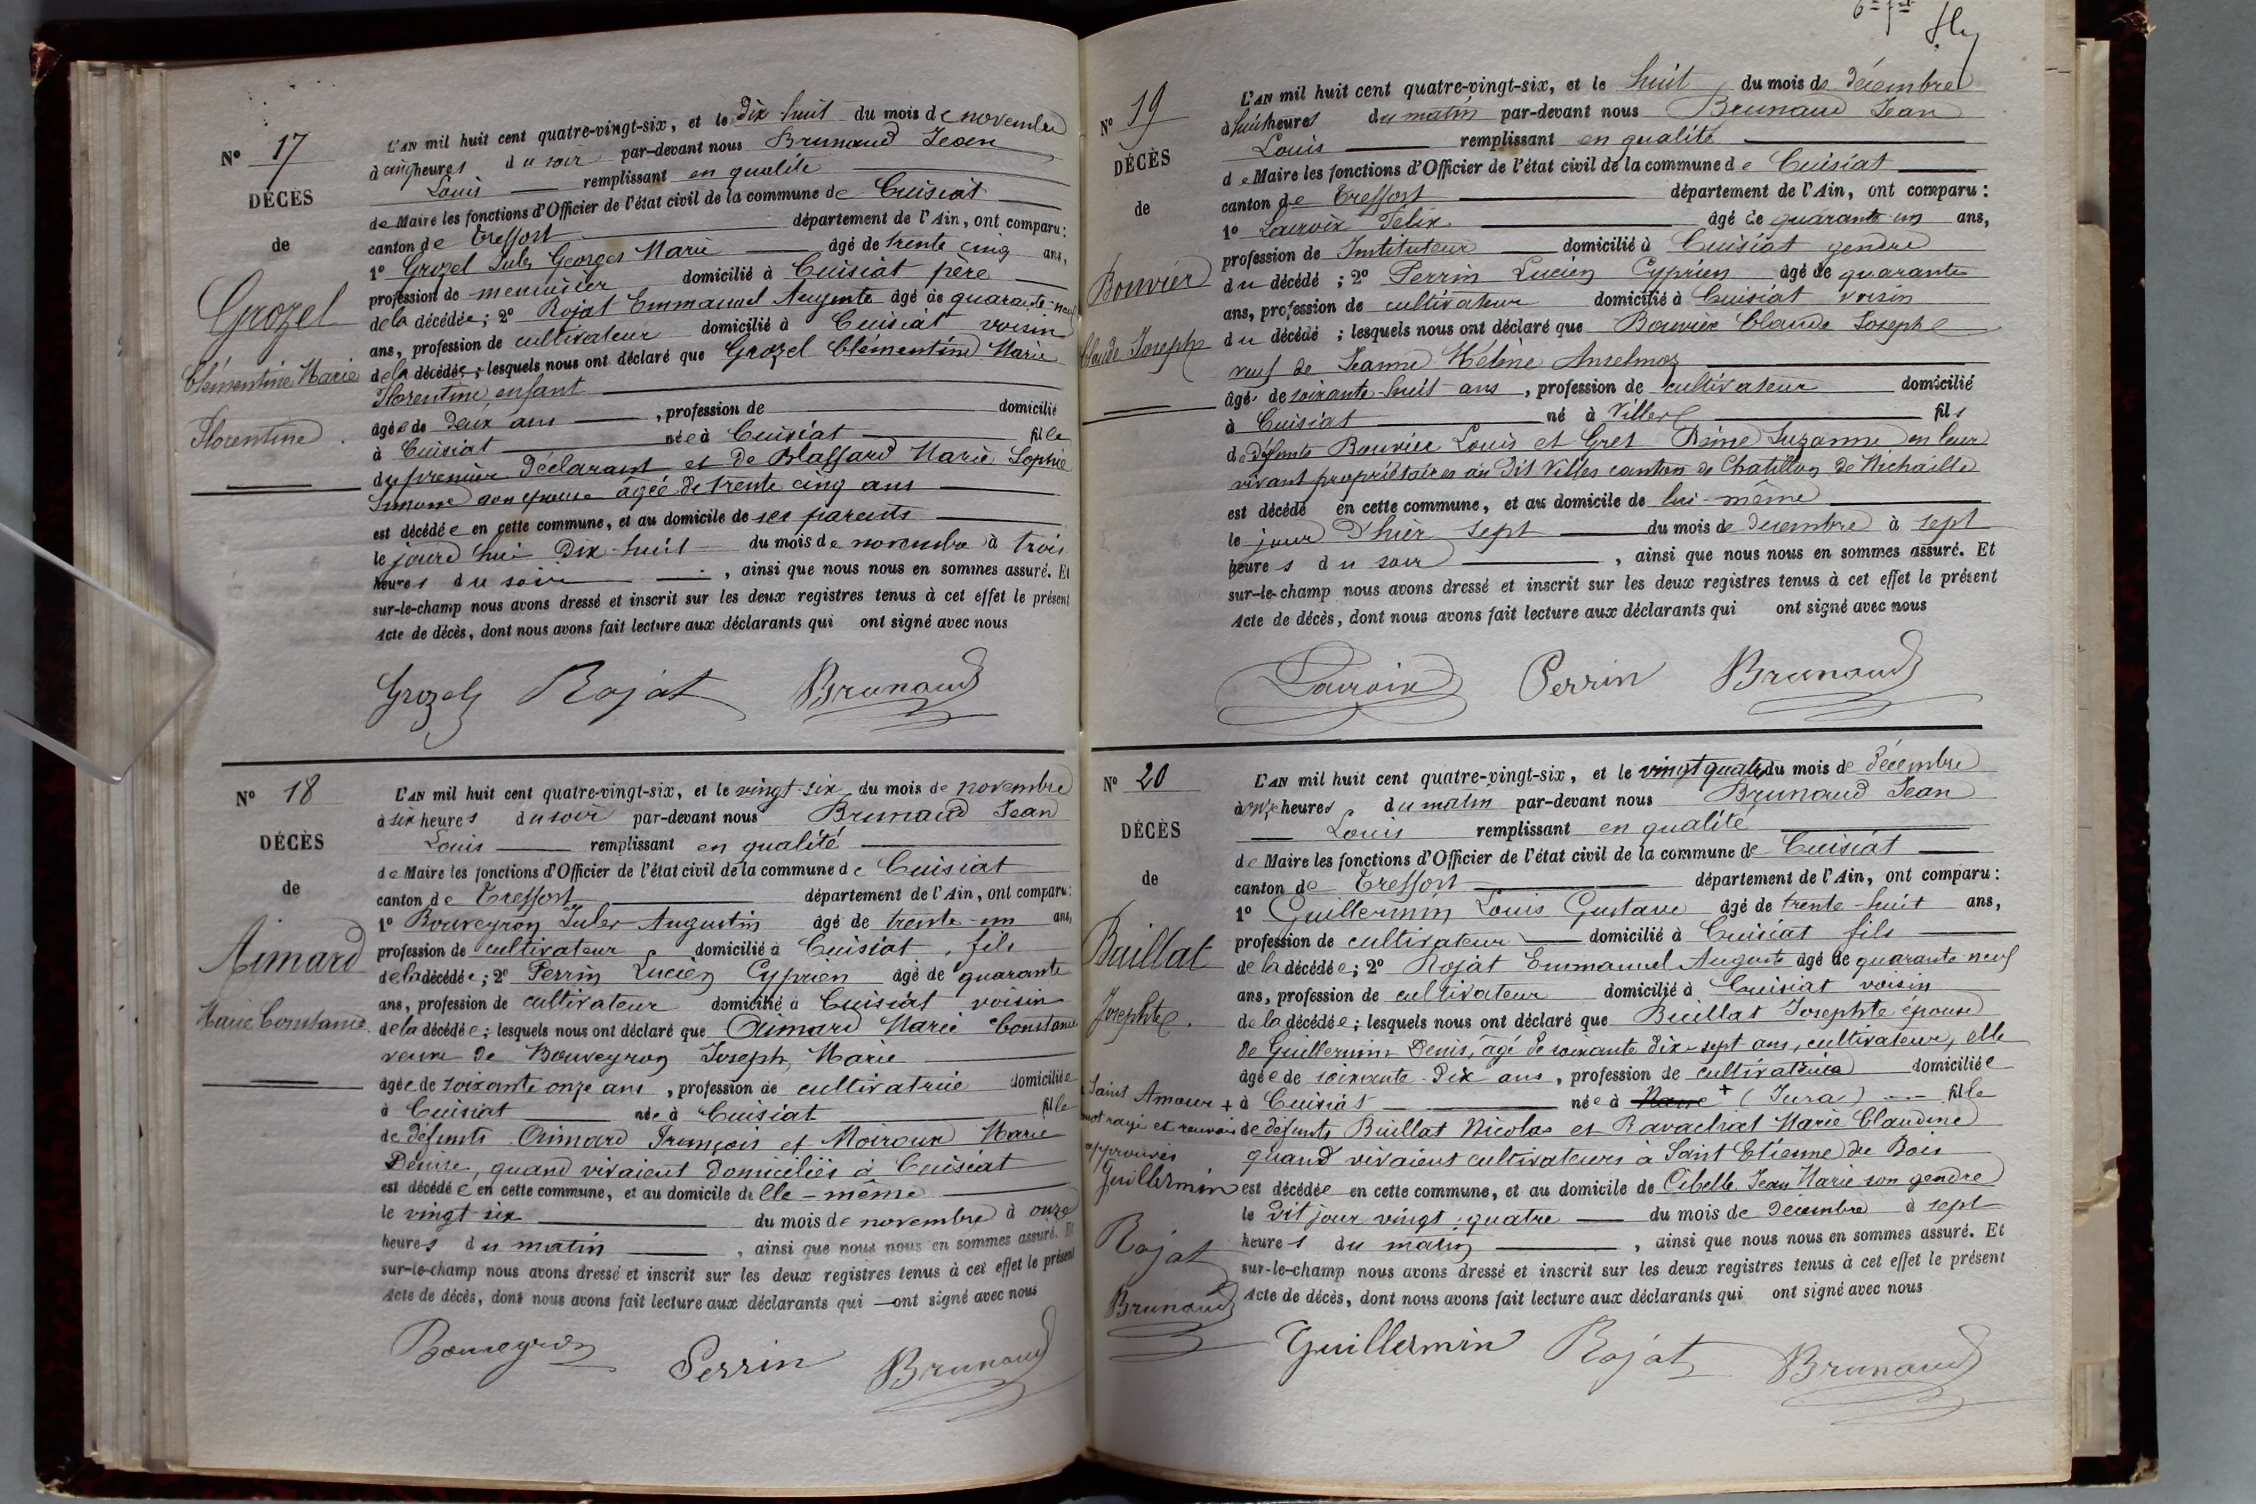 Nº 17
DÉCÈS
de
Grozel
Clémentine Marie
Florentine.
L'AN mil huit cent quatre-vingt-six, et le dix huit du mois de novembre
à cinq heures du soir par-devant nous Brunaud Jean
Louis remplissant en qualité
de Maire les fonctions d'Officier de l'état civil de la commune de Cuisiat
canton de Treffort département de l'Ain, ont comparu:
1º Grozel Jules Georges Marie âgé de trente cinq ans,
profession de menuisier domicilié à Cuisiat père
de la décédée; 2º Rojat Emmanuel Auguste âgé de quarante-neuf
ans, profession de cultivateur domicilié à Cuisiat voisin
de la décédée; lesquels nous ont déclaré que Grozel Clémentine Marie
Florentine enfant
âgée de deux ans, profession de domicilié
à Cuisiat née à Cuisiat fille
du premier déclarant et de Blaffard Marie Sophie
Simone son épouse âgée de trente cinq ans
est décédée en cette commune, et au domicile de ses parents
le jourd'hui dix-huit du mois de novembre à trois
heures du soir, ainsi que nous nous en sommes assuré. Et
sur-le-champ nous avons dressé et inscrit sur les deux registres tenus à cet effet le présent
Acte de décès, dont nous avons fait lecture aux déclarants qui ont signé avec nous
Grozel Rojat Brunaud
Nº 18
DÉCÈS
de
Aimard
Marie Constance
L'AN mil huit cent quatre-vingt-six, et le vingt-six du mois de novembre
à six heures du soir par-devant nous Brunaud Jean
Louis remplissant en qualité
de Maire les fonctions d'Officier de l'état civil de la commune de Cuisiat
canton de Treffort département de l'Ain, ont comparu:
1º Bouveyron Jules Augustin âgé de trente-un ans,
profession de cultivateur domicilié à Cuisiat, fils
de la décédée; 2º Perrin Lucien Cyprien âgé de quarante
ans, profession de cultivateur domicilié à Cuisiat voisin
de la décédée; lesquels nous ont déclaré que Aimard Marie Constance
veuve de Bouveyron Joseph Marie
âgée de soixante onze ans, profession de cultivatrice domiciliée
à Cuisiat née à Cuisiat fille
de défunts Aimard François et Moiroux Marie
Denise, quand vivaient domiciliés à Cuisiat
est décédée en cette commune, et au domicile d'elle-même
le vingt six du mois de novembre à onze
heures du matin, ainsi que nous nous en sommes assuré. Et
sur-le-champ nous avons dressé et inscrit sur les deux registres tenus à cet effet le présent
Acte de décès, dont nous avons fait lecture aux déclarants qui — ont signé avec nous
Bouveyron Perrin Brunaud
Nº 19
DÉCÈS
de
Bouvier
Claude Joseph
L'AN mil huit cent quatre-vingt-six, et le huit du mois de décembre
à huit heures du matin par-devant nous Brunaud Jean
Louis remplissant en qualité
de Maire les fonctions d'Officier de l'état civil de la commune de Cuisiat
canton de Treffort département de l'Ain, ont comparu:
1º Lacroix Félix âgé de quarante-un ans,
profession de Instituteur domicilié à Cuisiat gendre
du décédé; 2º Perrin Lucien Cyprien âgé de quarante
ans, profession de cultivateur domicilié à Cuisiat voisin
du décédé; lesquels nous ont déclaré que Bouvier Claude Joseph
veuf de Jeanne Hélène Anselmoz
âgé de soixante-huit ans, profession de cultivateur domicilié
à Cuisiat né à Villes fils
de défunts Bouvier Louis et Gret Reine Suzanne en leur
vivant propriétaires au dit Villes canton de Chatillon de Michaille
est décédé en cette commune, et au domicile de lui-même
le jour d'hier sept du mois de décembre à sept
heures du soir, ainsi que nous nous en sommes assuré. Et
sur-le-champ nous avons dressé et inscrit sur les deux registres tenus à cet effet le présent
Acte de décès, dont nous avons fait lecture aux déclarants qui ont signé avec nous
Lacroix Perrin Brunaud
Nº 20
DÉCÈS
de
Buillat
Josephte.
L'AN mil huit cent quatre-vingt-six, et le vingt quatre du mois de décembre
à onze heures du matin par-devant nous Brunaud Jean
Louis remplissant en qualité
de Maire les fonctions d'Officier de l'état civil de la commune de Cuisiat
canton de Treffort département de l'Ain, ont comparu:
1º Guillermin Louis Gustave âgé de trente-huit ans,
profession de cultivateur domicilié à Cuisiat fils
de la décédée; 2º Rojat Emmanuel Auguste âgé de quarante-neuf
ans, profession de cultivateur domicilié à Cuisiat voisin
de la décédée; lesquels nous ont déclaré que Buillat Josephte épouse
de Guillermin Denis, âgé de soixante dix-sept ans, cultivateur, elle
âgée de soixante-dix ans, profession de cultivatrice domiciliée
à Cuisiat née à + (Jura) fille
de défunts Buillat Nicolas et Ravachat Marie Claudine
quand vivaient cultivateurs à Saint Etienne du Bois
est décédée en cette commune, et au domicile de Cibelle Jean Marie son gendre
le dit jour vingt-quatre du mois de décembre à sept
heures du matin, ainsi que nous nous en sommes assuré. Et
sur-le-champ nous avons dressé et inscrit sur les deux registres tenus à cet effet le présent
Acte de décès, dont nous avons fait lecture aux déclarants qui ont signé avec nous
Guillermin Rojat Brunaud
Saint Amour +
mot rayé et renvoi
approuvés
Guillermin
Rojat
Brunaud